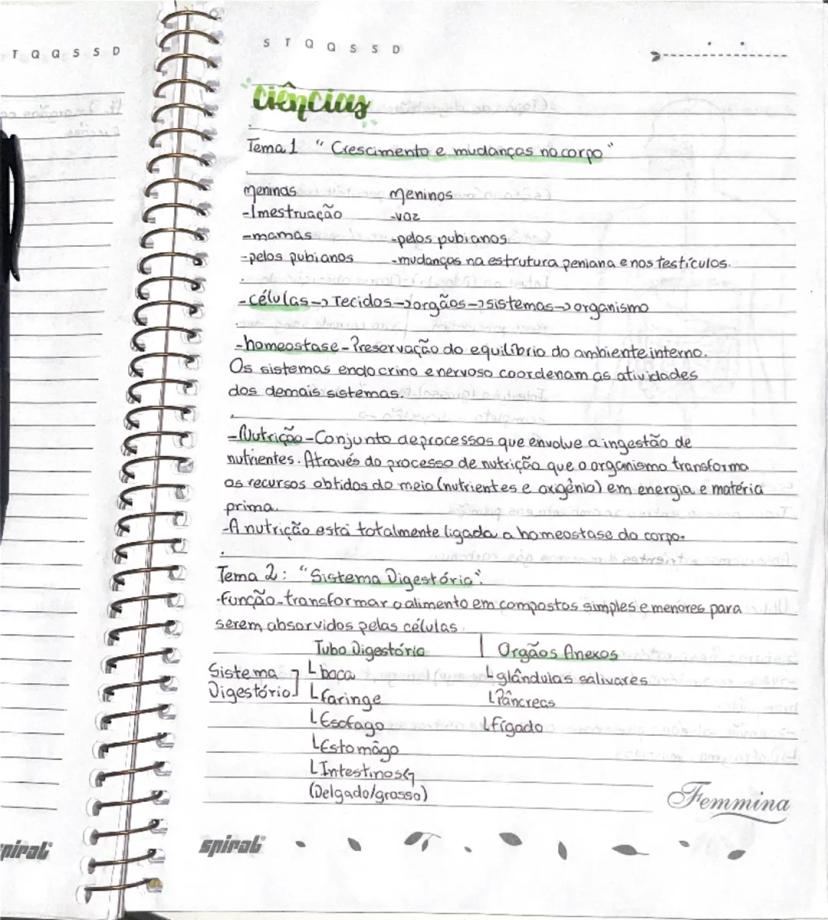 T Q Q S S D
S T Q Q S S D
Ciências
Tema 1 "Crescimento e mudanças no corpo"
meninas meninos
-1mestruação -voz
-mamas -pelos pubianos
-pelos pubianos -mudanças na estrutura peniana e nos testículos.
-células→Tecidos→orgãos→sistemas→organismo
-homeostase-Preservação do equilíbrio do ambiente interno.
Os sistemas endocrino e nervoso coordenam as atividades
dos demais sistemas.
-Nutrição-Conjunto de processos que envolve a ingestão de
nutrientes. Através do processo de nutrição que o organismo transforma
os recursos obtidos do meio (nutrientes e oxigênio) em energia e matéria
prima.
-A nutrição está totalmente ligada a homeostase do corpo.
Tema 2: "Sistema Digestório".
-função-transformar o alimento em compostos simples e menores para
serem absorvidos pelas células.
Tubo Digestório | Orgãos Anexos
Sistema boca glândulas salivares
Digestório faringe Pâncreas
Esofago fígado
Estomâgo
Intestinos
(Delgado/grosso)
Femmina
spiral
spiral